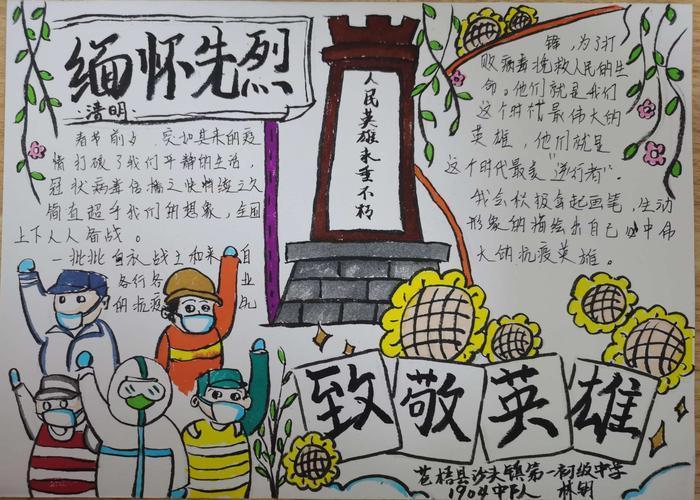 缅怀先烈
清明:
春节前夕，突如其来的疫
情打破了我们平静的生活，
冠状病毒传播之快持续之久
简直超乎我们的想象，全国
上下人人备战。
一批批白衣战士和来自
各行各业
的抗疫
人民英雄永垂不朽
锋，为了打
败病毒挽救人民的生
命。他们就是我们
这个时代最伟大的
英雄，他们就是
这个时代最美"逆行者"。
我会积极拿起画笔，生动
形象的描绘出自己心中伟
大的抗疫英雄。
致敬英雄
苍梧县沙头镇第一初级中学
1904班 林钥